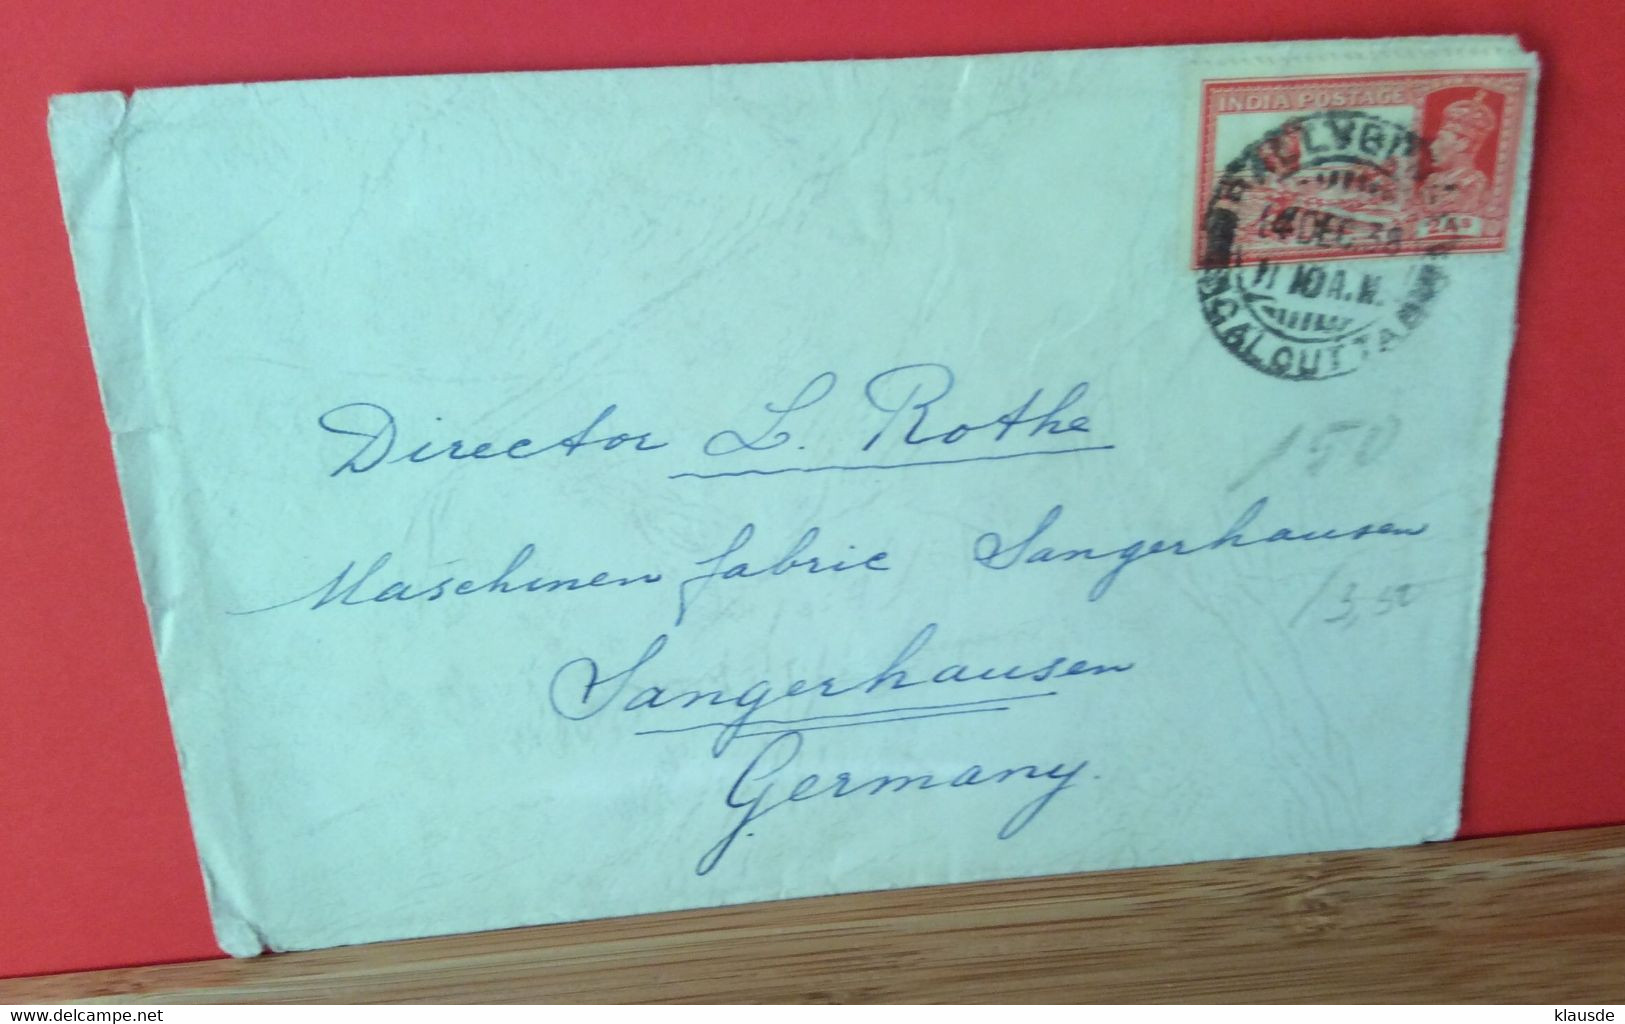 INDIA POSTAGE
2AS
14 DEC 38
11 10 A.M.
CALCUTTA
Director L. Rothe
Maschinen fabric Sangerhausen
Sangerhausen
Germany.
150
13,50
www.delcampe.net
klausde